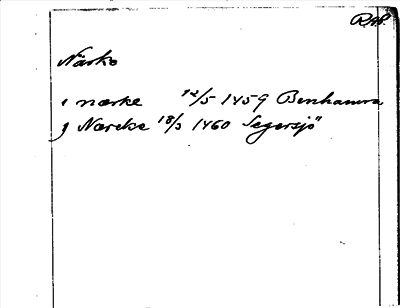 RAP.
Närke
i nærke 12/5 1459 Benhamra
J Nærcke 18/3 1460 Segersjö